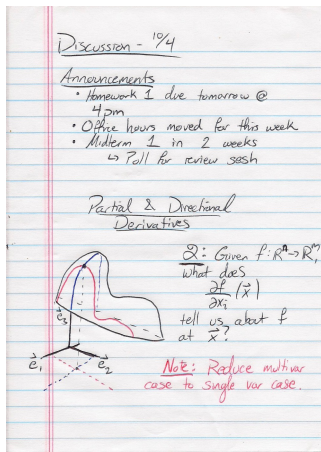 Discussion - 10/4
Announcements
• Homework 1 due tomorrow @
4pm
• Office hours moved for this week
• Midterm 1 in 2 weeks
↳ Poll for review sesh
Partial & Directional
Derivatives
Q: Given f: Rⁿ → Rᵐ,
what does
∂f/∂xᵢ (x⃗)
tell us about f
at x⃗?
Note: Reduce multivar
case to single var case.
e⃗₃
e⃗₁ e⃗₂